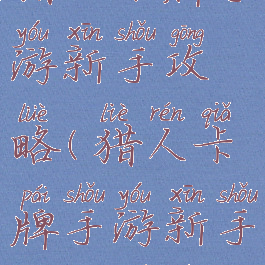 yóu xīn shǒu gōng
游新手攻
lüè liè rén qiǎ
略(猎人卡
pái shǒu yóu xīn shǒu
牌手游新手